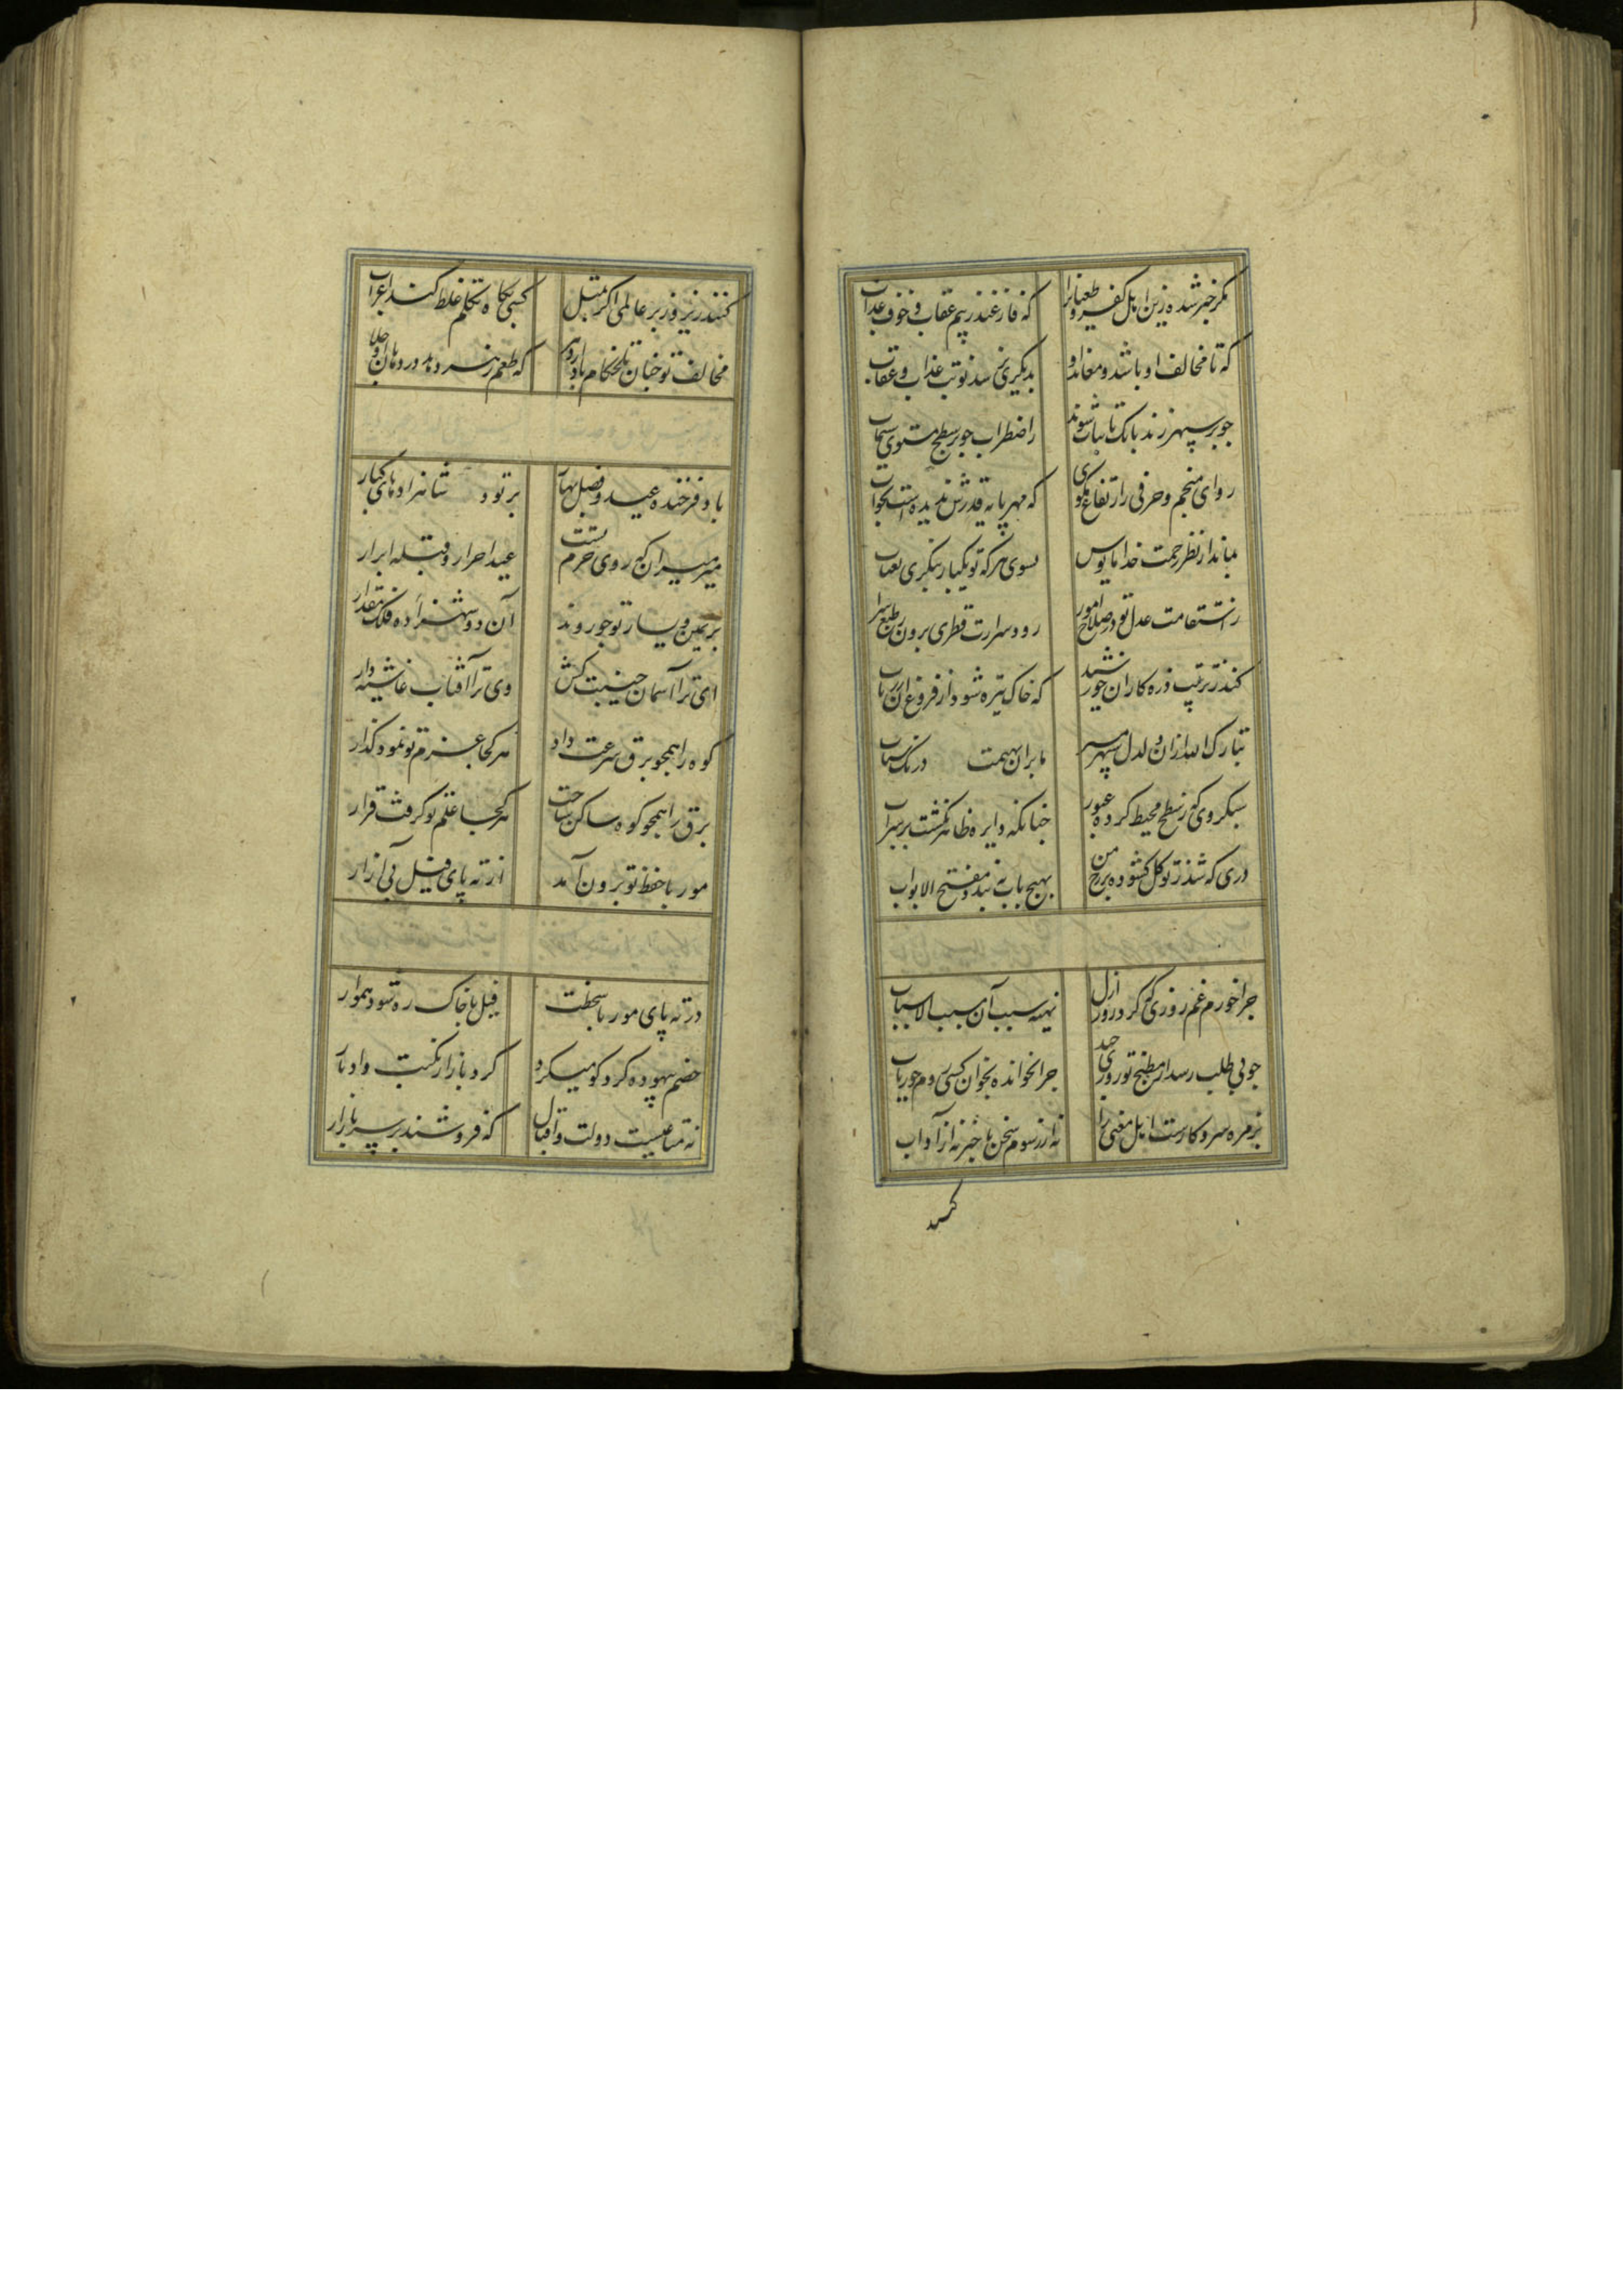 مگر خبر شده زین اهل کفر و طغیانرا که فارغند ز بیم عقاب و خوف عذاب
که تا مخالف او باشد و معاند او بدیگری نرسد نوبت عذاب و عقاب
چو بر سپهر زند بانک با ثبات شوند ز اضطراب چو بر سطح مستوی سیماب
رو ای منجم و حرفی ز ارتفاع مگوی که مهر پایه قدرش ندیده است بخواب
بماند از نظر رحمت خدا مایوس بسوی هرکه تو یکبار بنگری بعتاب
ز استقامت عدل تو در صلاح امور رود سرارت فطری برون ز طبع
کند ز تربیت ذره کار آن خورشید که خاک تیره شود از فروغ آن
تبارک الله ازان دلدل سپهر مسیر
سبکروی که ز سطح محیط کرده عبور چنانکه دایره ظاهر نگشت بر سر آب
دری که شد ز توکل گشوده بر رخ من بهیچ باب نه بندد مفتح الابواب
چرا خورم غم روزی که کرد روز ازل تهیه سبب آن مسبب الاسباب
چو بی طلب رسد از مطبخ تو روزی خود چرا نخوانده بخوان کسی روم چو
بزمره سر و کارست اهل معنی را نه از رسوم سخن با خبر نه از آداب
کنند
کنند زیر و زبر عالمی اگر بمثل کسی بگاه تکلم غلط کند اعراب
مخالف تو چنان تلخکام باد
باد فرخنده عید و فصل بهار بر تو و شاهزادهای کبار
میر میران که روی حرم تست عید احرار و قبله ابرار
بر یمین و یسار تو چو روند آن دو شهزاده فلک مقدار
ای ترا آسمان جنیبت کش وی ترا آفتاب غاشیه دار
کوه را همچو برق سرعت داد هر کجا عزم تو نمود گذار
برق را همچو کوه ساکن ساخت هر کجا حلم تو گرفت قرار
مور با حفظ تو برون آمد از ته پای فیل بی آزار
در ته پای مور با سخطت فیل با خاک ره شود هموار
خصم بیهوده کرد کو میکرد گرد بازار نکبت و ادبار
نه متاعیست دولت و اقبال که فروشند بر سر بازار